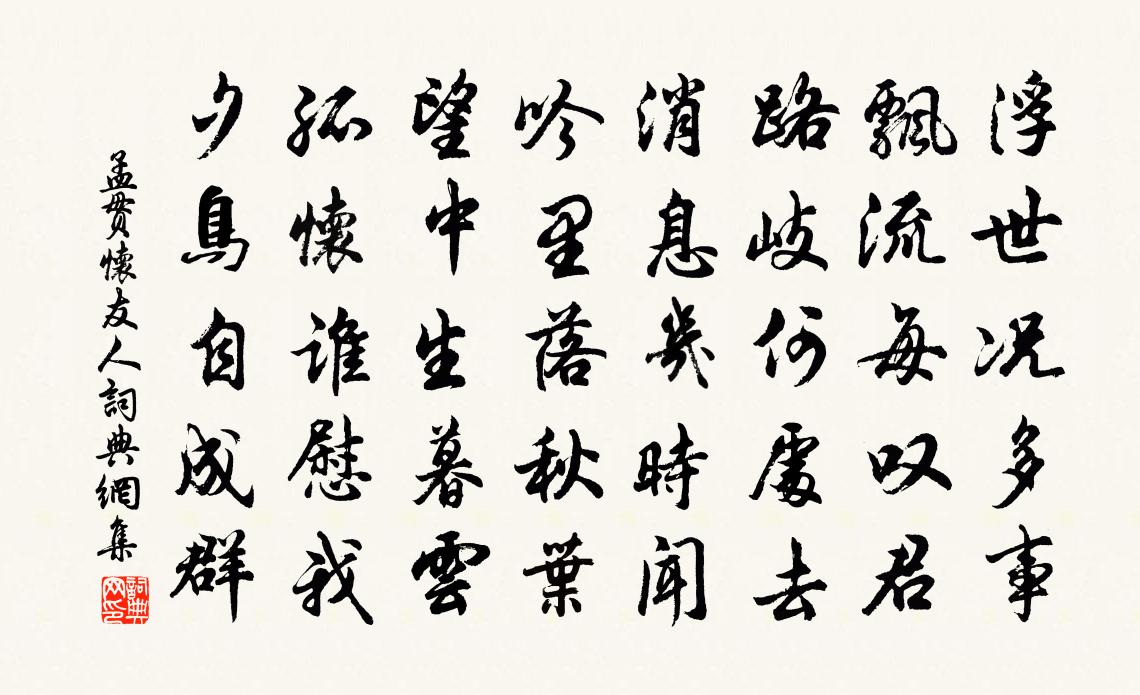 浮世况多事
飄流每叹君
路岐何處去
消息幾時聞
吟里落秋葉
望中生暮雲
孤懷誰慰我
夕鳥自成群
孟貫懷友人詞典網集
詞典網印